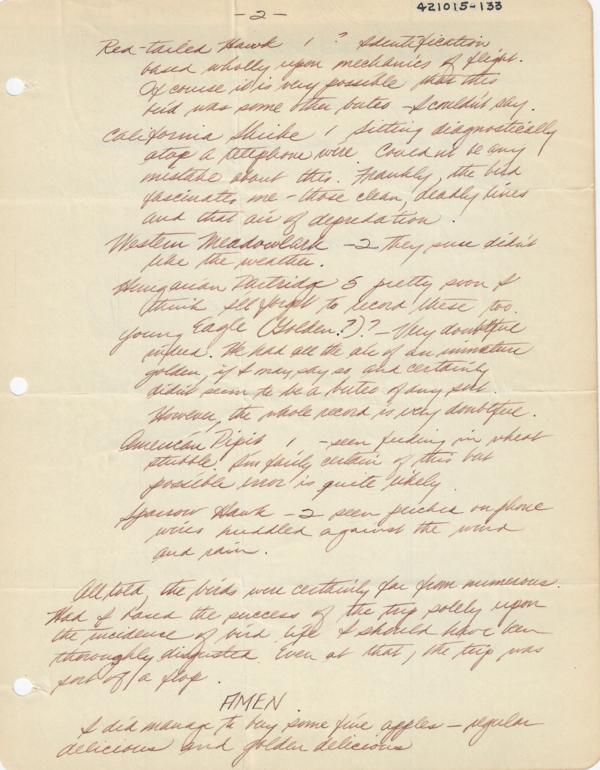 - 2 -
421015-133
Red-tailed Hawk 1 ? Identification
based wholly upon mechanics of flight.
Of course it is very possible that this
bird was some other buteo - I couldn't say.
California Shrike 1 Sitting diagnostically
atop a telephone wire. Couldn't be any
mistake about this. Frankly, the bird
fascinates me - those clean, deadly lines
and that air of depredation.
Western Meadowlark - 2 they sure didn't
like the weather.
Hungarian Partridge 5 pretty soon I
think I'll forget to record these too.
Young Eagle (Golden?)? - Very doubtful
indeed. He had all the air of an immature
golden, if I may say so and certainly
didn't seem to be a buteo of any sort.
However, the whole record is very doubtful.
American Pipit 1 - seen feeding in wheat
stubble. I'm fairly certain of this but
possible error is quite likely.
Sparrow Hawk - 2 seen perched on phone
wires huddled against the wind
and rain.
All told, the birds were certainly far from numerous.
Had I based the success of the trip solely upon
the incidence of bird life I should have been
thoroughly disgusted. Even at that, the trip was
sort of a flop.
AMEN.
I did manage to buy some fine apples - regular
delicious and golden delicious